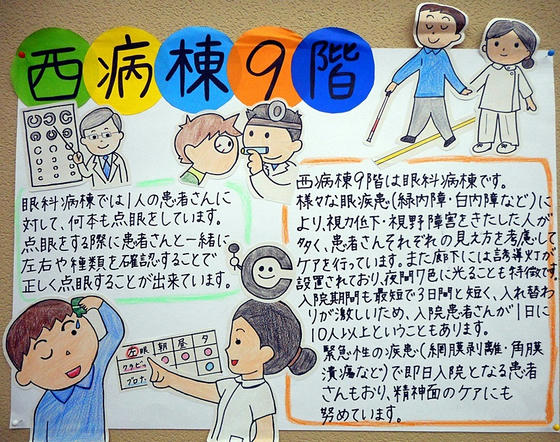 西病棟9階
眼科病棟では1人の患者さんに
対して、何本も点眼をしています。
点眼をする際に患者さんと一緒に
左右や種類を確認することで
正しく点眼することが出来ています。
西病棟9階は眼科病棟です。
様々な眼疾患(緑内障・白内障など)に
より、視力低下・視野障害をきたした人が
多く、患者さんそれぞれの見え方を考慮して
ケアを行っています。また廊下には誘導灯が
設置されており、夜間7色に光ることも特徴です。
入院期間も最短で3日間と短く、入れ替わ
りが激しいため、入院患者さんが1日に
10人以上ということもあります。
緊急性の疾患(網膜剥離・角膜
潰瘍など)で即日入院となる患者
さんもおり、精神面のケアにも
努めています。
左眼 朝 昼 夕
クラビット